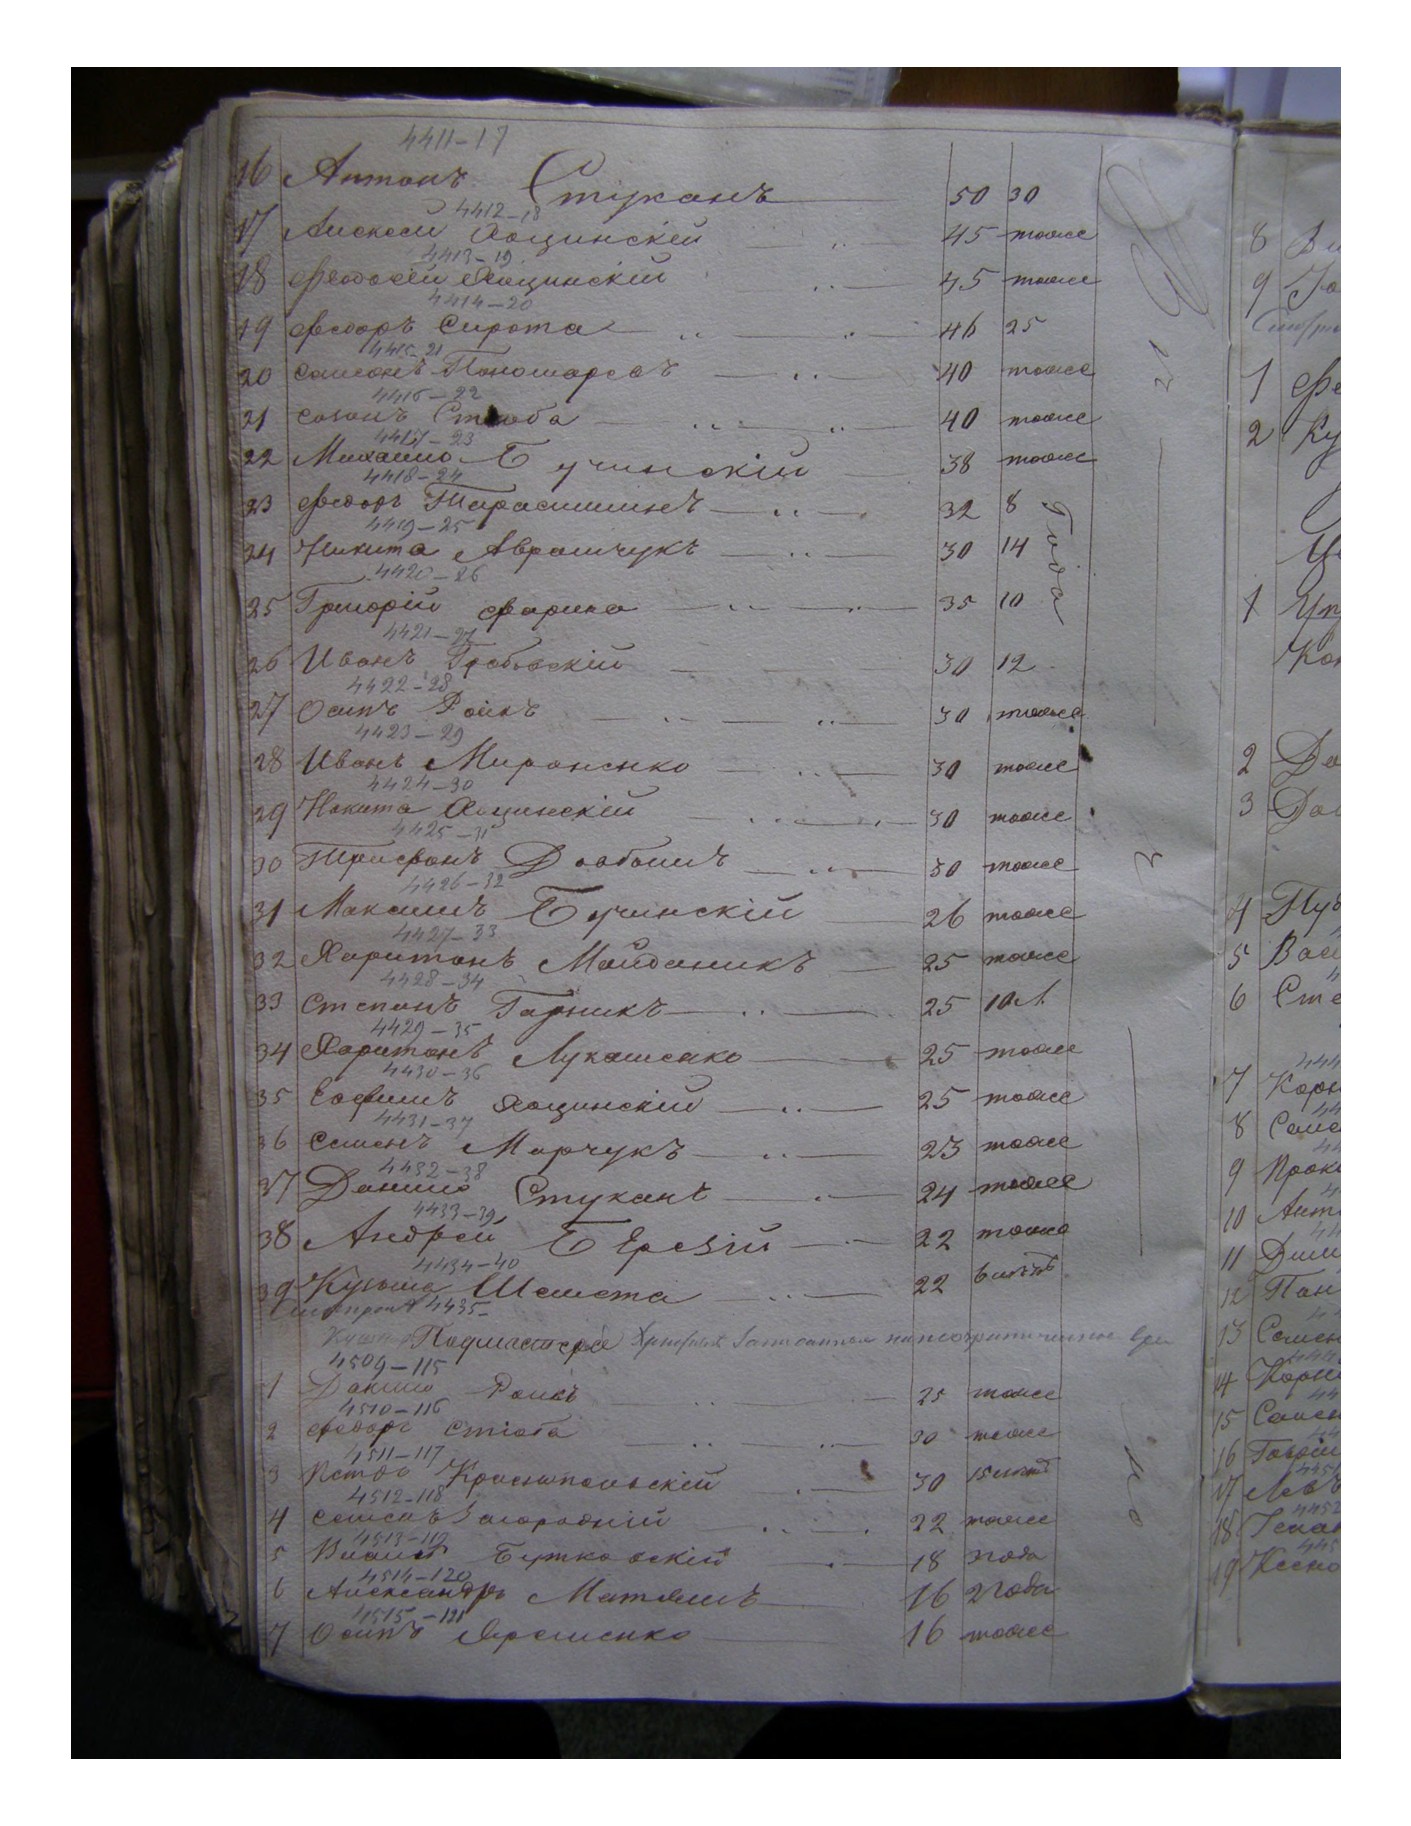 4411-17
16 Антонъ Стуканъ 50 30
4412-18
17 Алексей Хоцинскій 45 тоже
4413-19
18 Феодосей Хоцинскій 45 тоже
4414-20
19 Федоръ Сирота 46 25
4415-21
20 Самсонъ Пономаревъ 40 тоже
4416-22
21 Созонъ 40 тоже
4417-23
22 Михайло Бучинскій 38 тоже
4418-24
23 Федоръ 32 8
4419-25
24 Никита Аврамчукъ 30 14
года
4420-26
25 Григорій Фарина 35 10
4421-27
26 Иванъ Грабовскій 30 12
4422-28
27 Осипъ Роикъ 30 тоже
4423-29
28 Иванъ Мироненко 30 тоже
4424-30
29 Никита Хоцинскій 30 тоже
4425-31
30 Трифонъ Довбышъ 30 тоже
4426-32
31 Максимъ Бучинскій 26 тоже
4427-33
32 Харитонъ Майданикъ 25 тоже
4428-34
33 Степанъ Гарникъ 25 10 л
4429-35
34 Харитонъ Лукашенко 25 тоже
4430-36
35 Евфимъ Хоцинскій 25 тоже
4431-37
36 Семенъ Марчукъ 23 тоже
4432-38
37 Данило Стуканъ 24 тоже
4433-39
38 Андрей Березій 22 тоже
4434-40
39 Кузьма Шемета 22 6 летъ
4435-
Подмастерья
4509-115
1 Данило Роикъ 25 тоже
4510-116
2 Федоръ 30 тоже
4511-117
3 Петро Краснопольскій 30 15 летъ
4512-118
4 Семенъ Загородній 22 тоже
4513-119
5 Бутковскій 18 3 года
4514-120
6 Александръ 16 2 года
4515-121
7 Осипъ Яременко 16 тоже
8
9
1
2
1
2
3
4
5
6
7
8
9
10
11
12
13
14
15
16
17
18
19